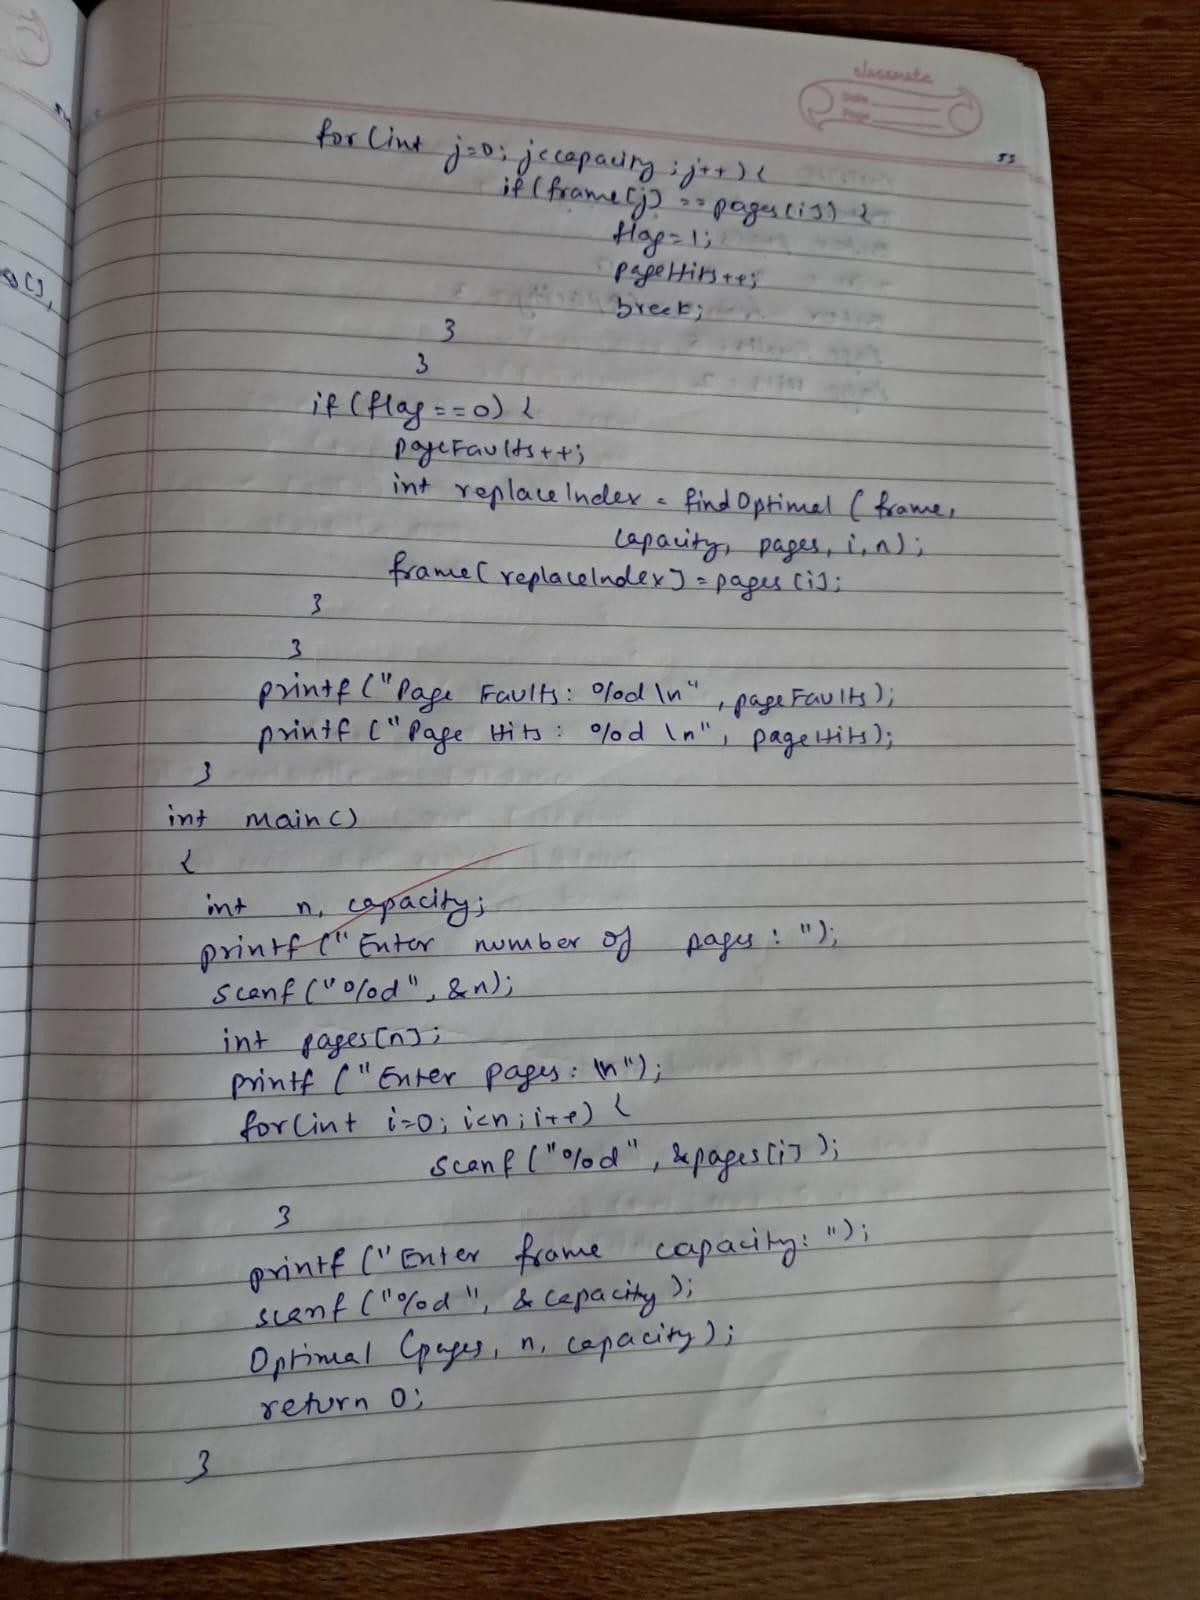 classmate
Date
Page
55
for(int j=0; j<capacity; j++) {
if(frame[j] == pages[i]) {
flag=1;
pageHits++;
break;
}
}
if(flag==0) {
pageFaults++;
int replaceIndex = findOptimal (frame,
capacity, pages, i, n);
frame[replaceIndex] = pages[i];
}
}
printf("Page Faults: %d \n", pageFaults);
printf("Page Hits: %d \n", pageHits);
}
int main()
{
int n, capacity;
printf("Enter number of pages: ");
scanf("%d", &n);
int pages[n];
printf("Enter pages: \n");
for(int i=0; i<n; i++) {
scanf("%d", &pages[i]);
}
printf("Enter frame capacity: ");
scanf("%d", &capacity);
Optimal (pages, n, capacity);
return 0;
}